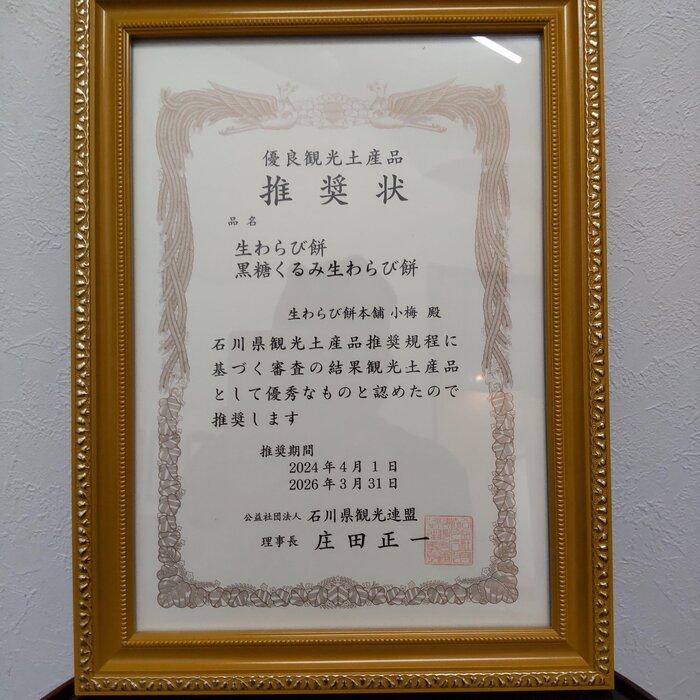 優良観光土産品
推奨状
品名
生わらび餅
黒糖くるみ生わらび餅
生わらび餅本舗 小梅 殿
石川県観光土産品推奨規程に
基づく審査の結果観光土産品
として優秀なものと認めたので
推奨します
推奨期間
2024年4月1日
2026年3月31日
公益社団法人 石川県観光連盟
理事長 庄田正一